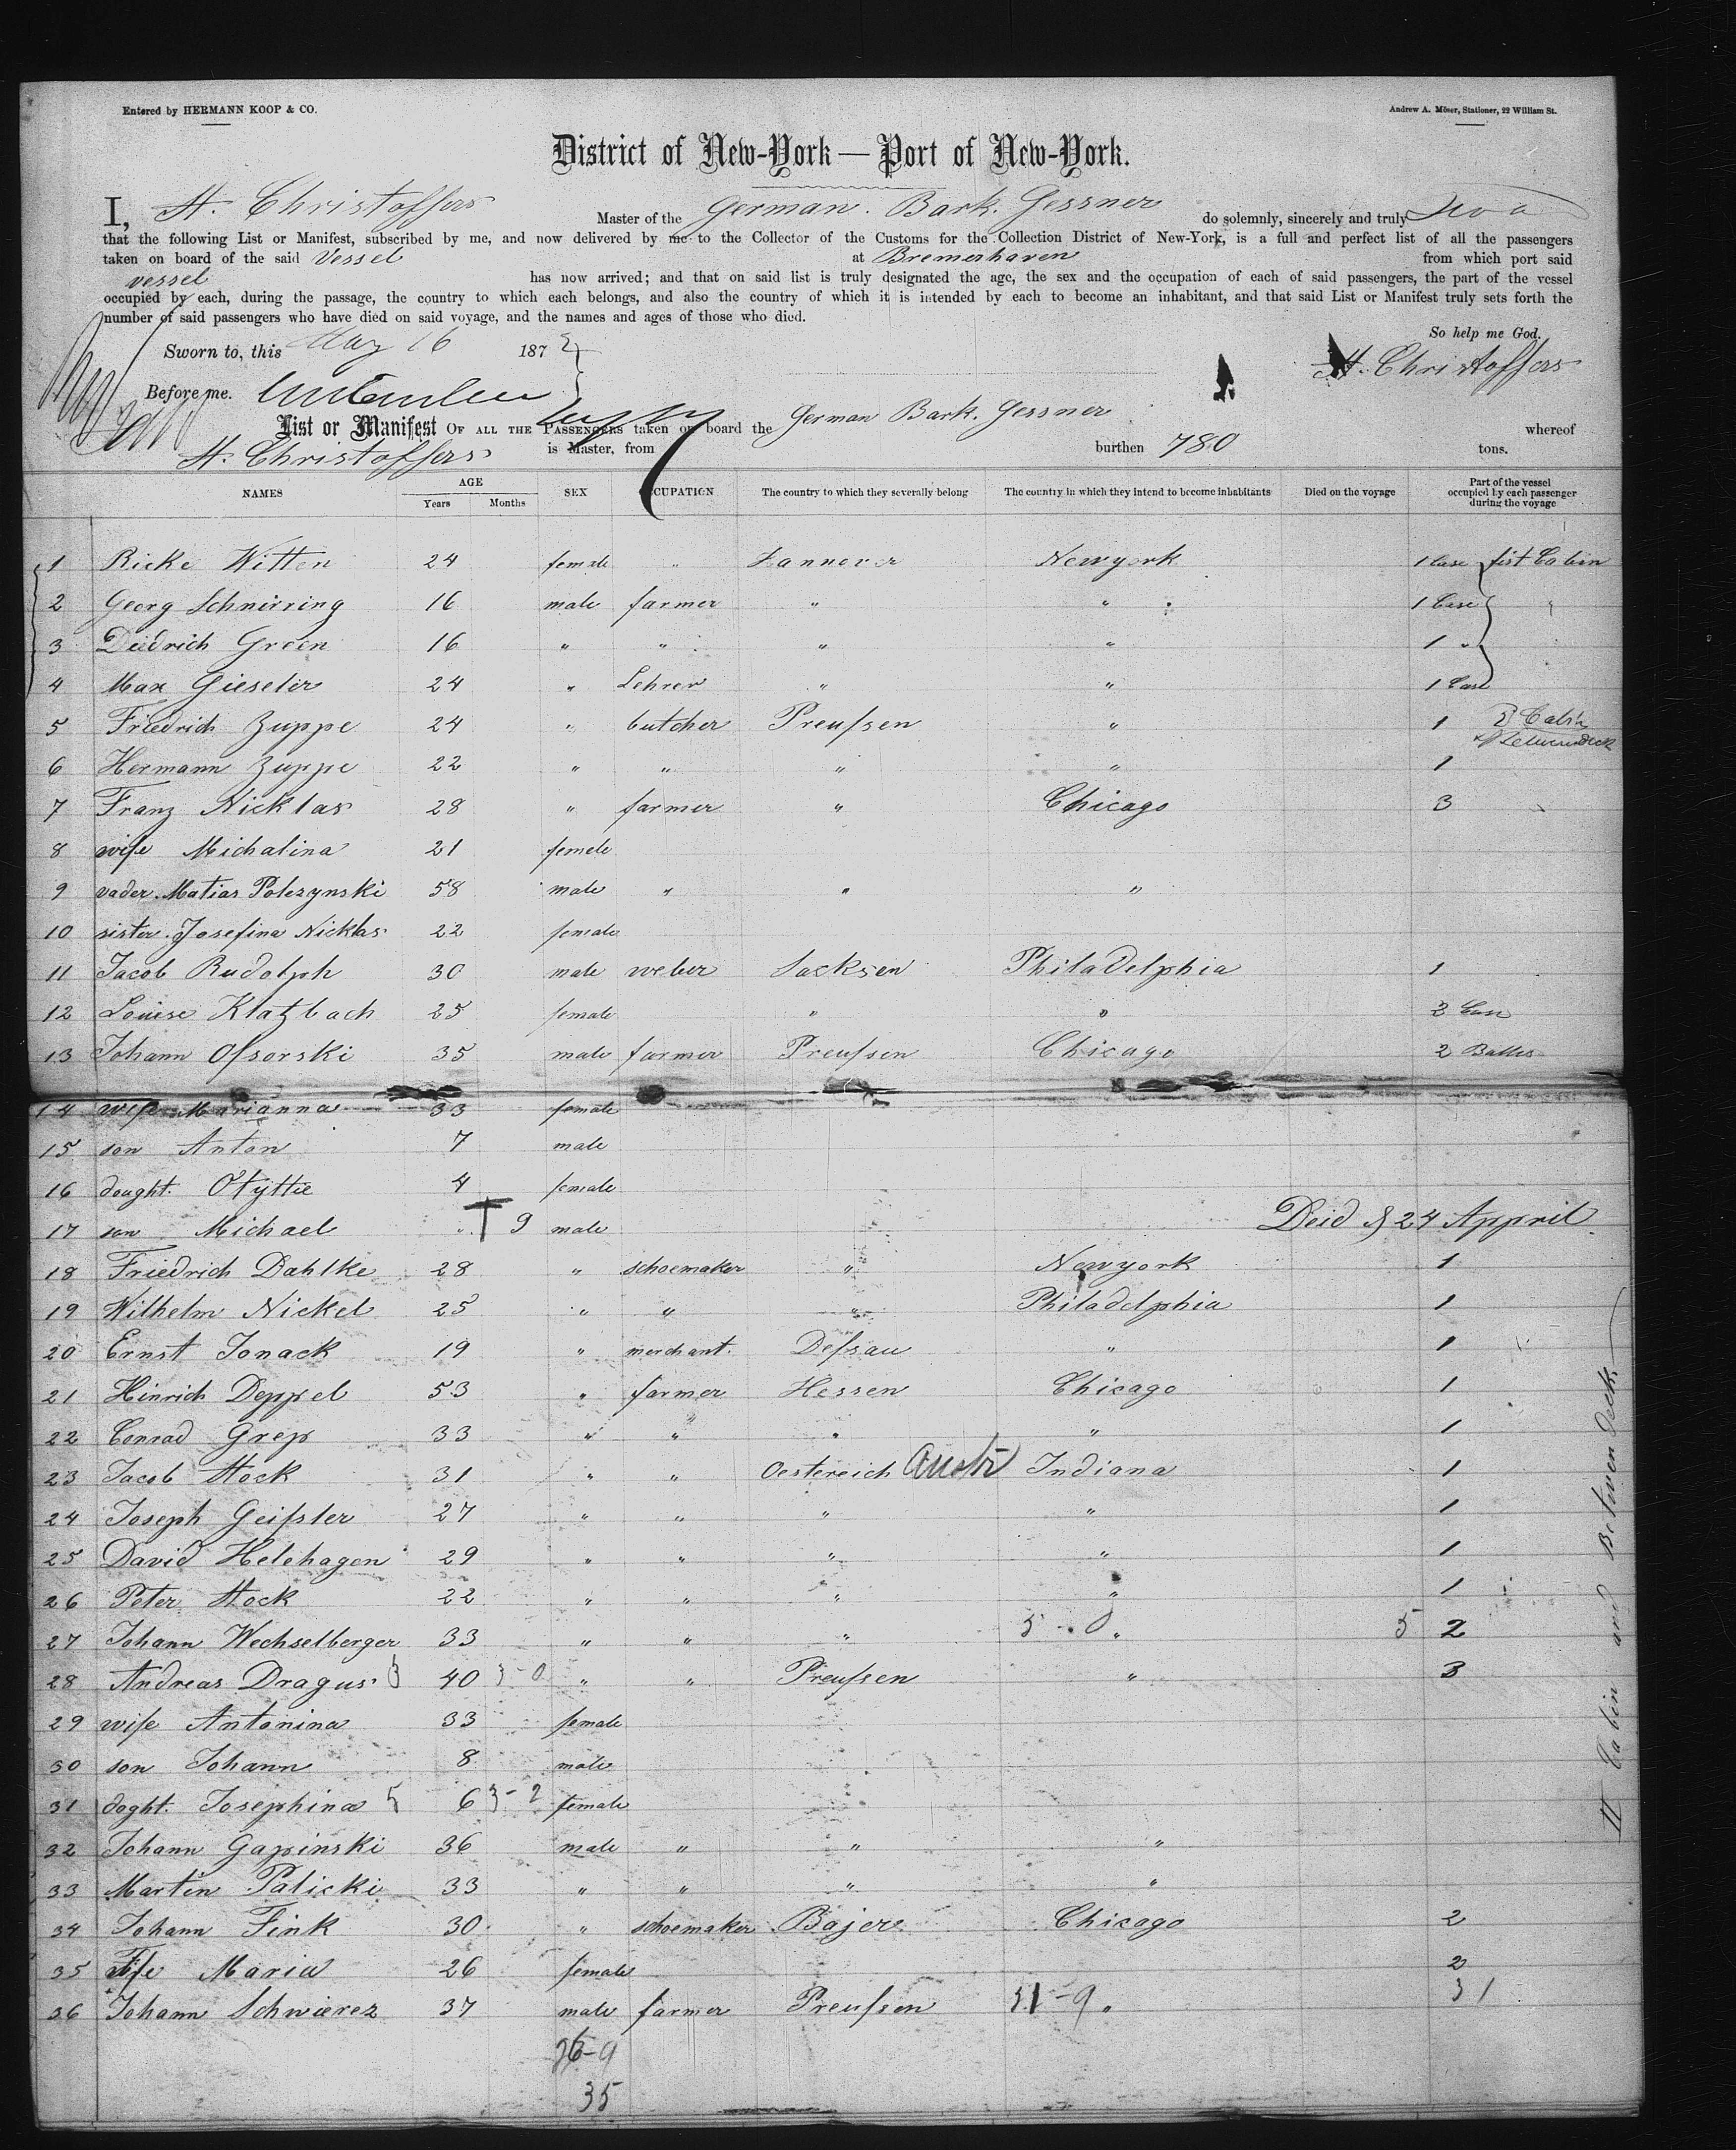 Entered by HERMANN KOOP & CO.
Andrew A. Möser, Stationer, 22 William St.
District of New-York — Port of New-York.
I, H. Christoffers Master of the German. Bark. Gessner do solemnly, sincerely and truly
that the following List or Manifest, subscribed by me, and now delivered by me to the Collector of the Customs for the Collection District of New-York, is a full and perfect list of all the passengers
taken on board of the said Vessel at Bremerhaven from which port said
vessel has now arrived; and that on said list is truly designated the age, the sex and the occupation of each of said passengers, the part of the vessel
occupied by each, during the passage, the country to which each belongs, and also the country of which it is intended by each to become an inhabitant, and that said List or Manifest truly sets forth the
number of said passengers who have died on said voyage, and the names and ages of those who died.
So help me God,
Sworn to, this May 16 187
H. Christoffers
Before me.
List or Manifest OF ALL THE PASSENGERS taken on board the German Bark. Gessner whereof
H. Christoffers is Master, from burthen 780 tons.
NAMES AGE Years Months SEX OCCUPATION The country to which they severally belong The country in which they intend to become inhabitants Died on the voyage Part of the vessel occupied by each passenger during the voyage
1 Ricke Witten 24 female " Hannover Newyork 1 Case fist Cabin
2 Georg Schnirring 16 male farmer " " 1 Case "
3 Diedrich Green 16 " " " " 1 "
4 Max Gieseler 24 " Lehrer " " 1 Case
5 Friedrich Zuppe 24 " butcher Preußsen " 1 2 Cabin
6 Hermann Zuppe 22 " " " " 1
7 Franz Nicklas 28 " farmer " Chicago 3
8 wife Michalina 21 femele
9 vader. Matias Polezynski 58 male " " "
10 sister. Josefina Nicklas 22 female
11 Jacob Rudolph 30 male weber Sacksen Philadelphia 1
12 Louise Klatzbach 25 female " " 3 Case
13 Johann Ofsorski 35 male farmer Preufsen Chicago 2 Balles
14 wife Marianna 33 female
15 son Anton 7 male
16 dought. Otyttie 4 female
17 son Michael " † 9 male Deid 24 Appril
18 Friedrich Dahlke 28 " schoemaker " Newyork 1
19 Wilhelm Nickel 25 " " " Philadelphia 1
20 Ernst Jonack 19 " merchant. Defsau " 1
21 Hinrich Deppel 53 " farmer Hessen Chicago 1
22 Conrad Grep 33 " " " " 1
23 Jacob Hock 31 " " Oestereich Austr Indiana 1
24 Joseph Geifsler 27 " " " " 1
25 David Helehagen 29 " " " " 1
26 Peter Hock 22 " " " " 1
27 Johann Wechselberger 33 " " " 5 - 0 " 5 2
28 Andreas Dragus 40 3-0 " " Preufsen " 3
29 wife Antonina 33 female
30 son Johann 8 male
31 doght. Josephina 6 3-2 female
32 Johann Gapinski 36 male " " "
33 Martin Palicki 33 " " " "
34 Johann Fink 30 " schoemaker Bajern Chicago 2
35 Maria 26 female 2
36 Johann Schwierez 37 male farmer Preufsen 31-9 " 31
26-9
35
II Cabin and Betwen deck.